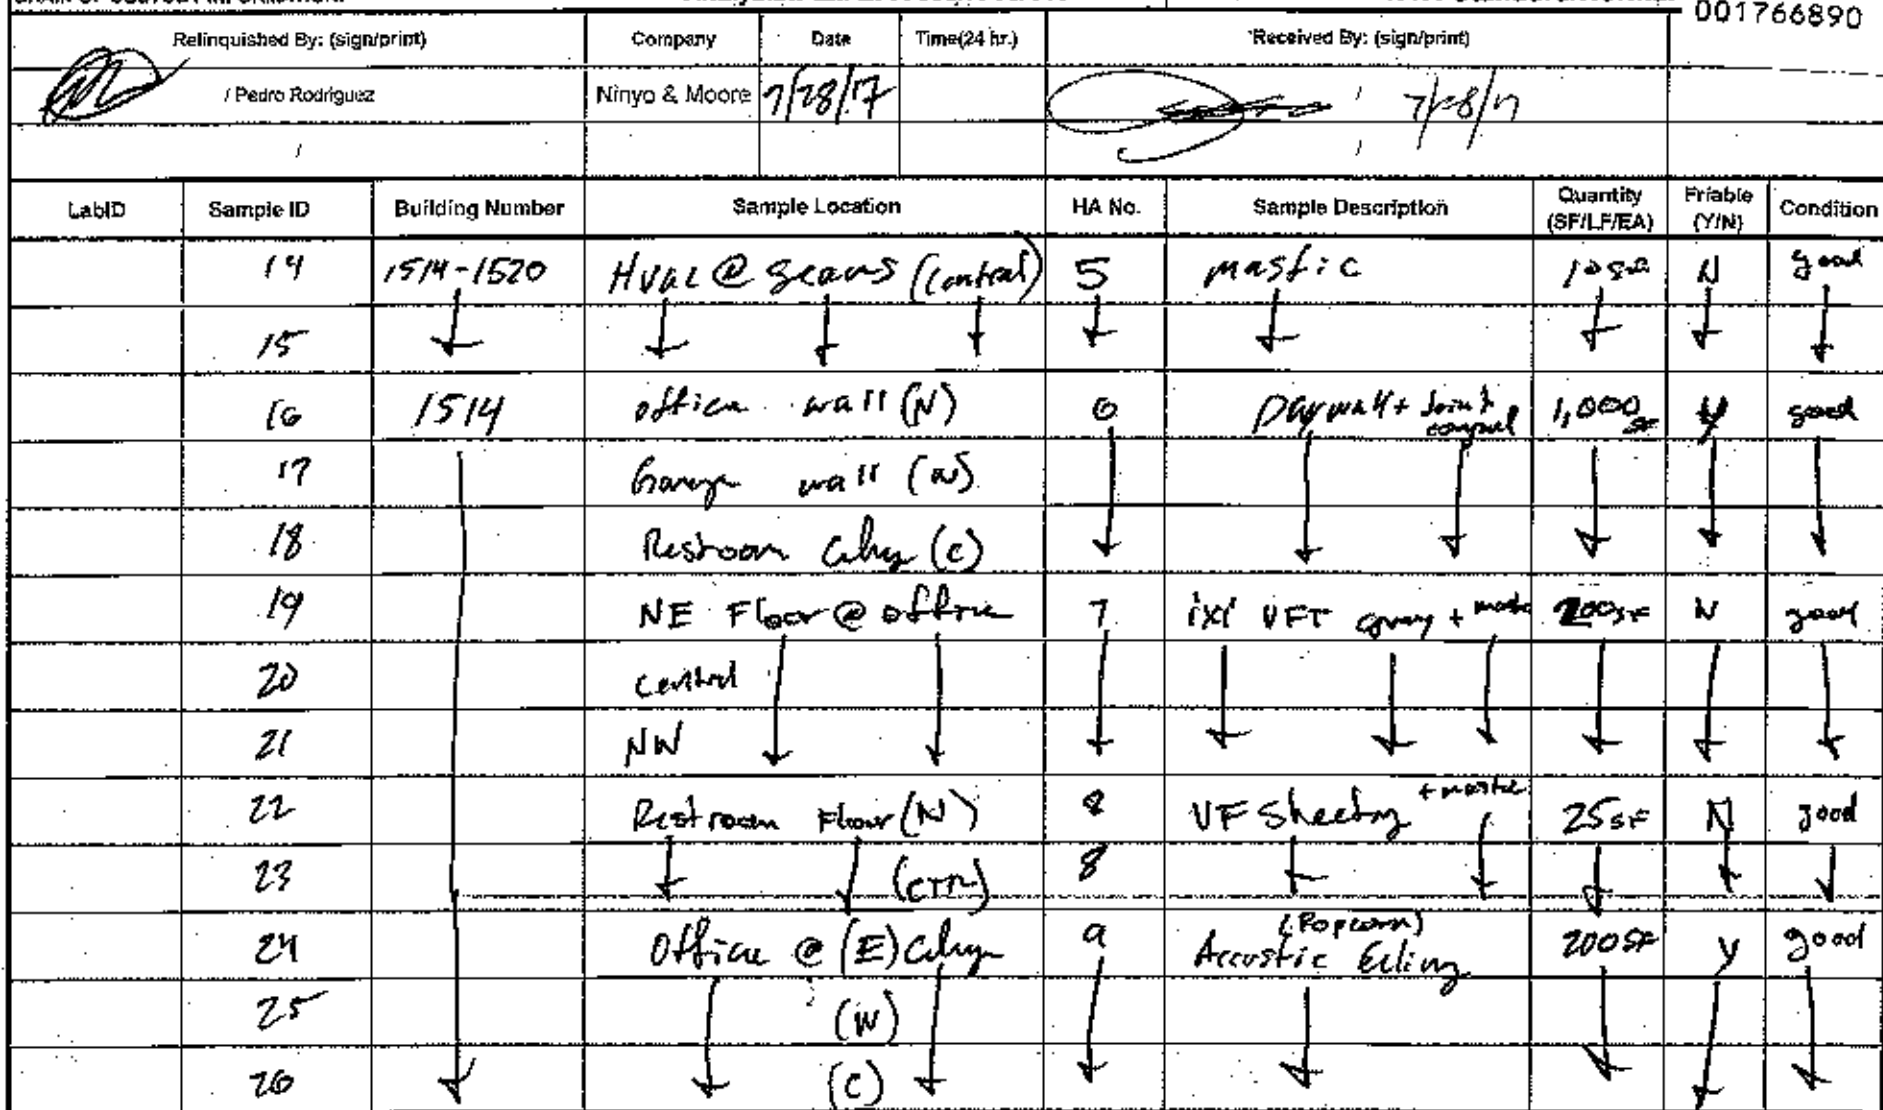 001766890
Relinquished By: (sign/print) Company Date Time(24 hr.) Received By: (sign/print)
/ Pedro Rodriguez Ninyo & Moore 7/28/17 / 7/28/17
/ /
LabID Sample ID Building Number Sample Location HA No. Sample Description Quantity (SF/LF/EA) Friable (Y/N) Condition
14 1514-1520 HVAC @ seams (Central) 5 mastic N good
15
16 1514 office wall (N) 6 Drywall + Joint 1,000 SF Y good
17 Garage wall (W)
18 Restroom (C)
19 NE Floor @ office 7 1x1 VFT gray + 200 SF N good
20 central
21 NW
22 Restroom Floor (N) 8 VF Sheeting + mastic 25 SF N good
23 (CTR) 8
24 Office @ (E) 9 (Popcorn) Accustic 200 SF Y good
25 (W)
26 (C)